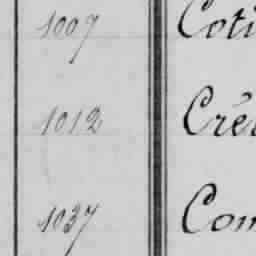 1007 Coti
1012 Cré
1037 Com